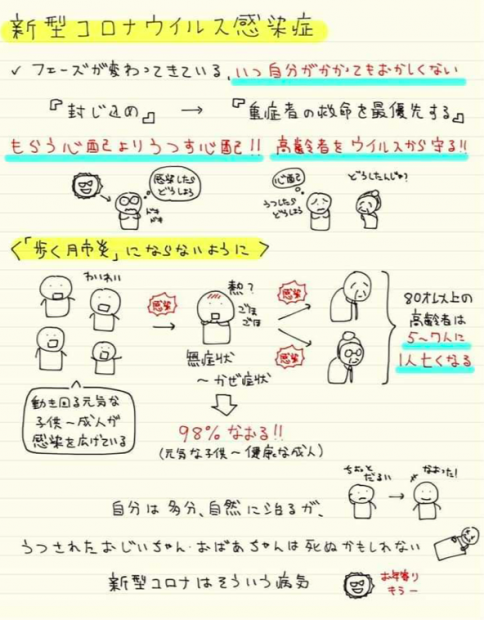 新型コロナウイルス感染症
✓ フェーズが変わってきている、いつ自分がかかってもおかしくない
『封じ込め』 → 『重症者の救命を最優先する』
もらう心配よりうつす心配!! 高齢者をウイルスから守る!!
感染したらどうしよう
ドキドキ
心配
うつしたらどうしよう
どうしたんじゃ?
<「歩く肺炎」にならないように>
わいわい
感染
熱?
ごほごほ
感染
感染
無症状
〜かぜ症状
80才以上の
高齢者は
5〜7人に
1人亡くなる
動き回る元気な
子供〜成人が
感染を広げている
98%なおる!!
(元気な子供〜健康な成人)
ちょっとだるい
なおった!
自分は多分、自然に治るが、
うつされたおじいちゃん・おばあちゃんは死ぬかもしれない
新型コロナはそういう病気
お年寄り